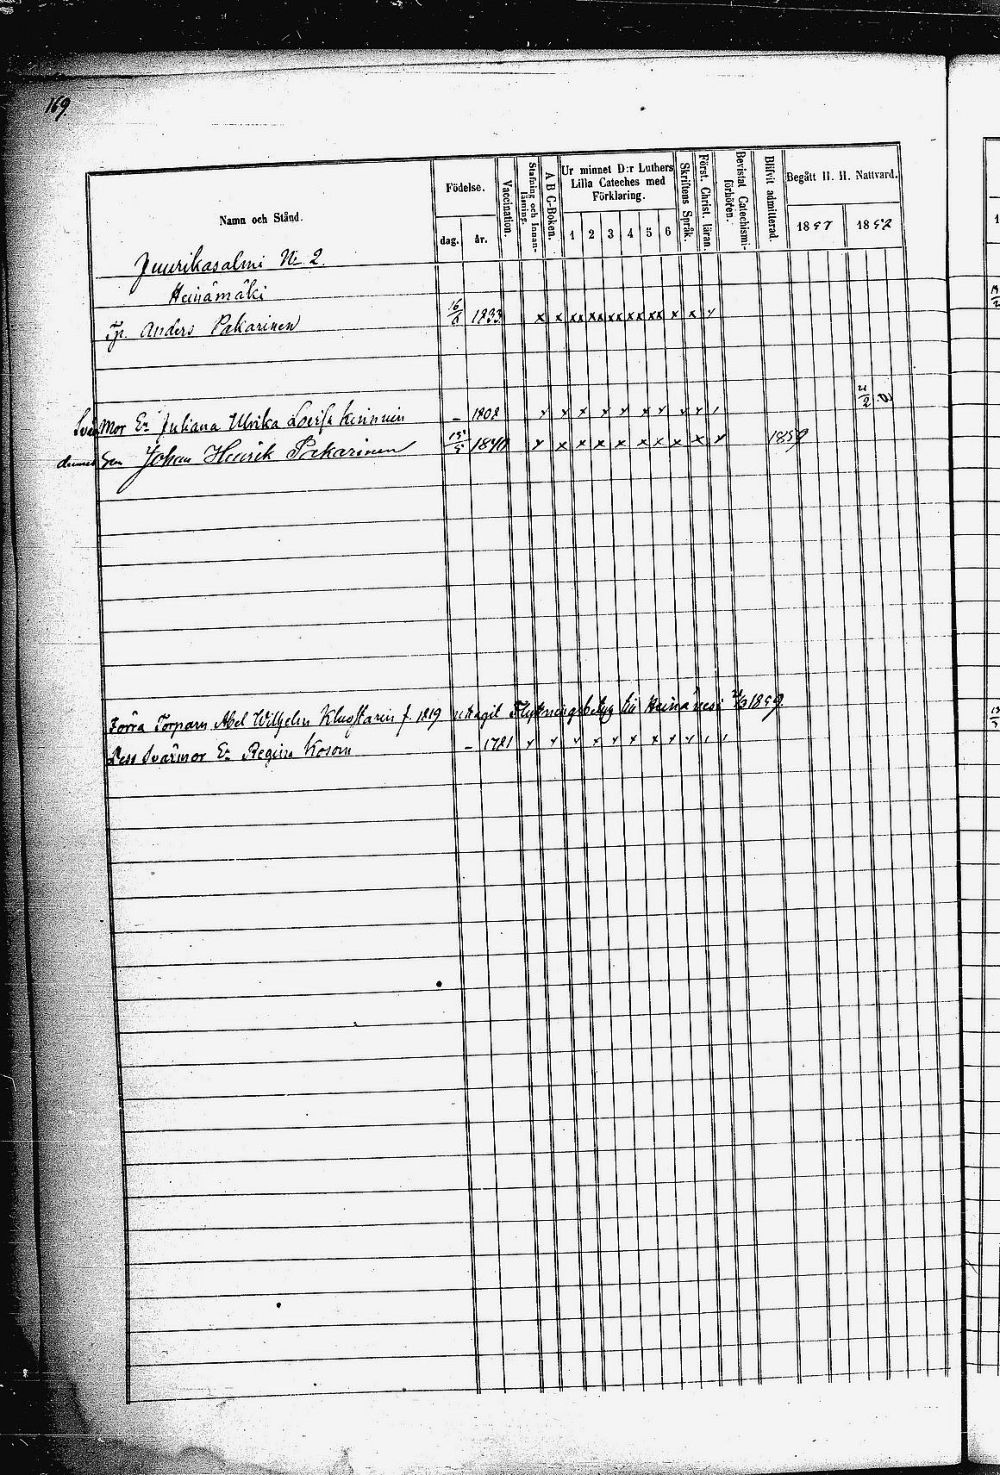 169
Namn och Stånd.
Födelse.
dag. år.
Vaccination.
Stafning och Innanläsning.
A B C-Boken.
Ur minnet D:r Luthers Lilla Cateches med Förklaring.
1 2 3 4 5 6
Skriftens Språk.
Först. Christ. läran.
Bevistat Catechismiförhören.
Blifvit admitterad.
Begått H. H. Nattvard.
1857 1858
Juurikasalmi No 2.
Heinämäki
Tp. Anders Pakarinen 16/6 1833 x x xx xx xx xx xx x x
Mor E: Juliana Ulrika Lovisa 1808 21/2
Son Johan Henrik Pakarinen 1840 x x x x x x x x x 1859
Förra Torparn Abel Wilhelm f. 1819 uttagit Flyttningsbetyg till Heinävesi 1859.
Dess Svärmor E: Regina Kosom – 1781